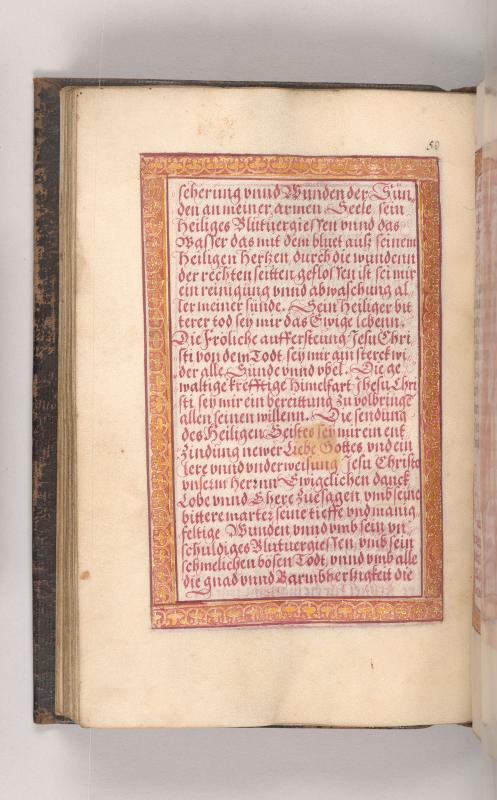 50
scherung vnnd Wunden der Sün,
den an meiner armen Seele sein
Heiliges Blutuergiessen vnnd das
Wasser das mit dem bluet auß seinem
Heiligen Hertzen durch die wundenn
der rechten seitten geflossen ist sei mir
ein reinigung vnnd abwaschung al
ler meiner sünde. Sein Heiliger bit
terer tod sey mir das Ewige lebenn.
Die Fröliche auffersteung Jesu Chri
sti von dem Todt sey mir ain sterck wi
der alle Sünde vnnd vbel. Die ge
waltige krefftige himelfart Jhesu Chri
sti sey mir ein bereittung zu volbringe
allen seinen willenn. Die sendung
des Heiligen Geistes sey mir ein ent
Zindung newer Liebe Gottes vnd ein
lere vnnd vnderweisung Jesu Christo
vnserm Herrnn Ewigelichen danck
Lobe vnnd Ehere zuesagen, vmb seine
bittere marter seine tieffe vnd manig
feltige Wunden vnnd vmb sein vn
schuldiges Blutuergiessen, vmb sein
schmelichen bosen Todt, vnnd vmb alle
die gnad vnnd Barmbhertzigkeit die